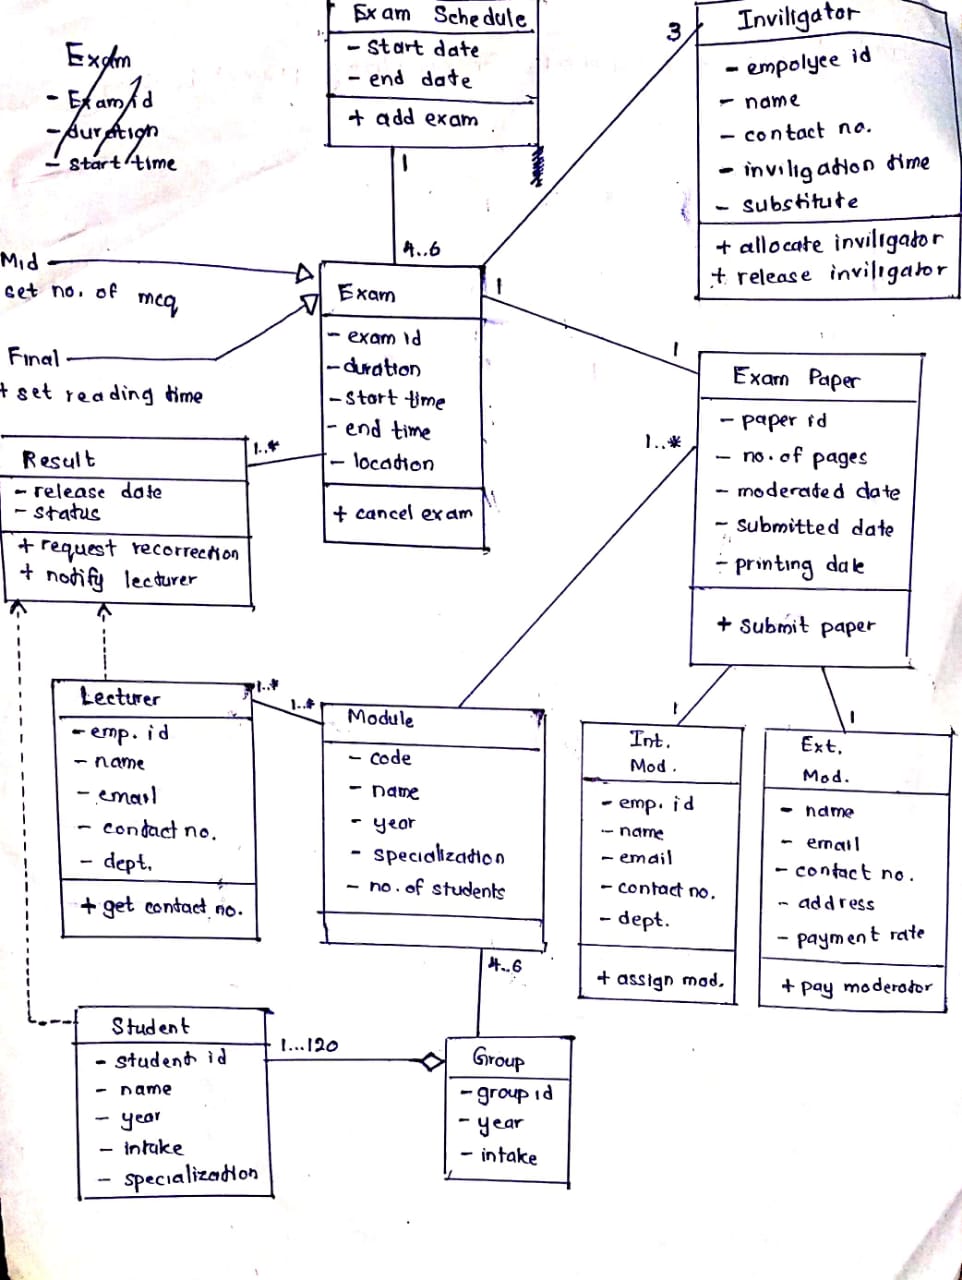 Exam
- Exam id
- duration
- start time
Exam Schedule
- start date
- end date
+ add exam
1
4..6
3
Inviligator
- empolyee id
- name
- contact no.
- inviligation time
- substitute
+ allocate inviligator
+ release inviligator
Mid
set no. of mcq
Final
+ set reading time
Exam
- exam id
- duration
- start time
- end time
- location
+ cancel exam
1
1
Exam Paper
- paper id
- no. of pages
- moderated date
- submitted date
- printing date
+ submit paper
1..*
1..*
Result
- release date
- status
+ request recorrection
+ notify lecturer
Lecturer
- emp. id
- name
- email
- contact no.
- dept.
+ get contact no.
1..*
1..*
Module
- code
- name
- year
- specialization
- no. of students
4..6
1
Int.
Mod.
- emp. id
- name
- email
- contact no.
- dept.
+ assign mod.
1
Ext.
Mod.
- name
- email
- contact no.
- address
- payment rate
+ pay moderator
Student
- student id
- name
- year
- intake
- specialization
1...120
Group
- group id
- year
- intake